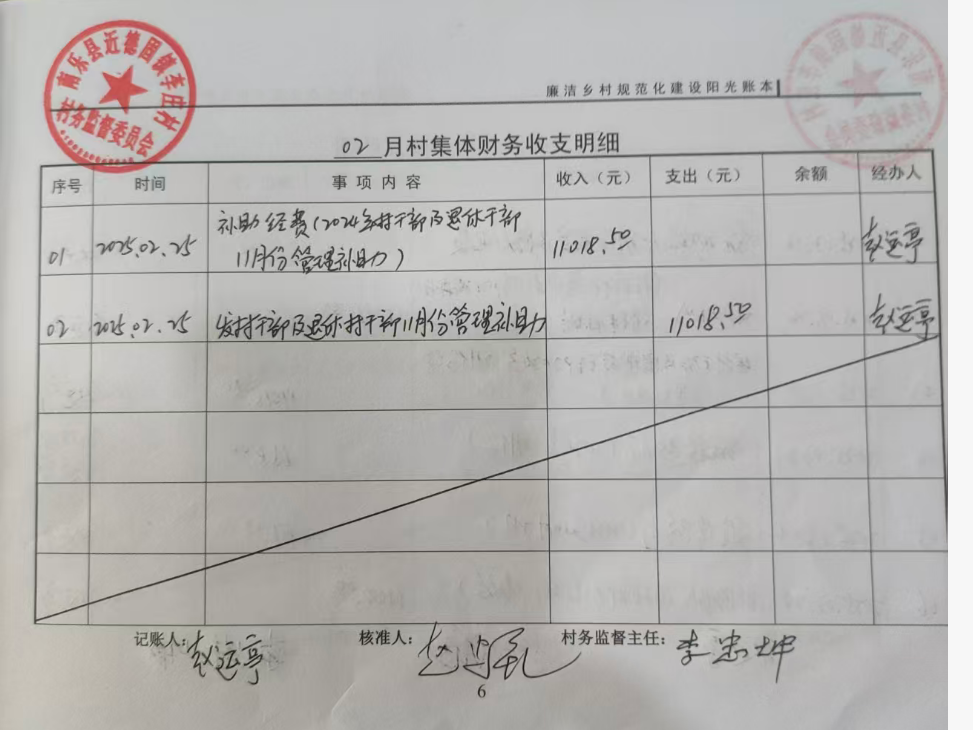 南乐县近德固镇李庄村
村务监督委员会
廉洁乡村规范化建设阳光账本
02月村集体财务收支明细
序号 时间 事项内容 收入（元） 支出（元） 余额 经办人
补助经费(2024年村干部及离休干部
01 2025.02.25 11018.50 赵运亭
11月份管理补助)
02 2025.02.25 发村干部及离休村干部11月份管理补助 11018.50 赵运亭
记账人: 赵运亭 核准人: 村务监督主任: 李忠坤
6